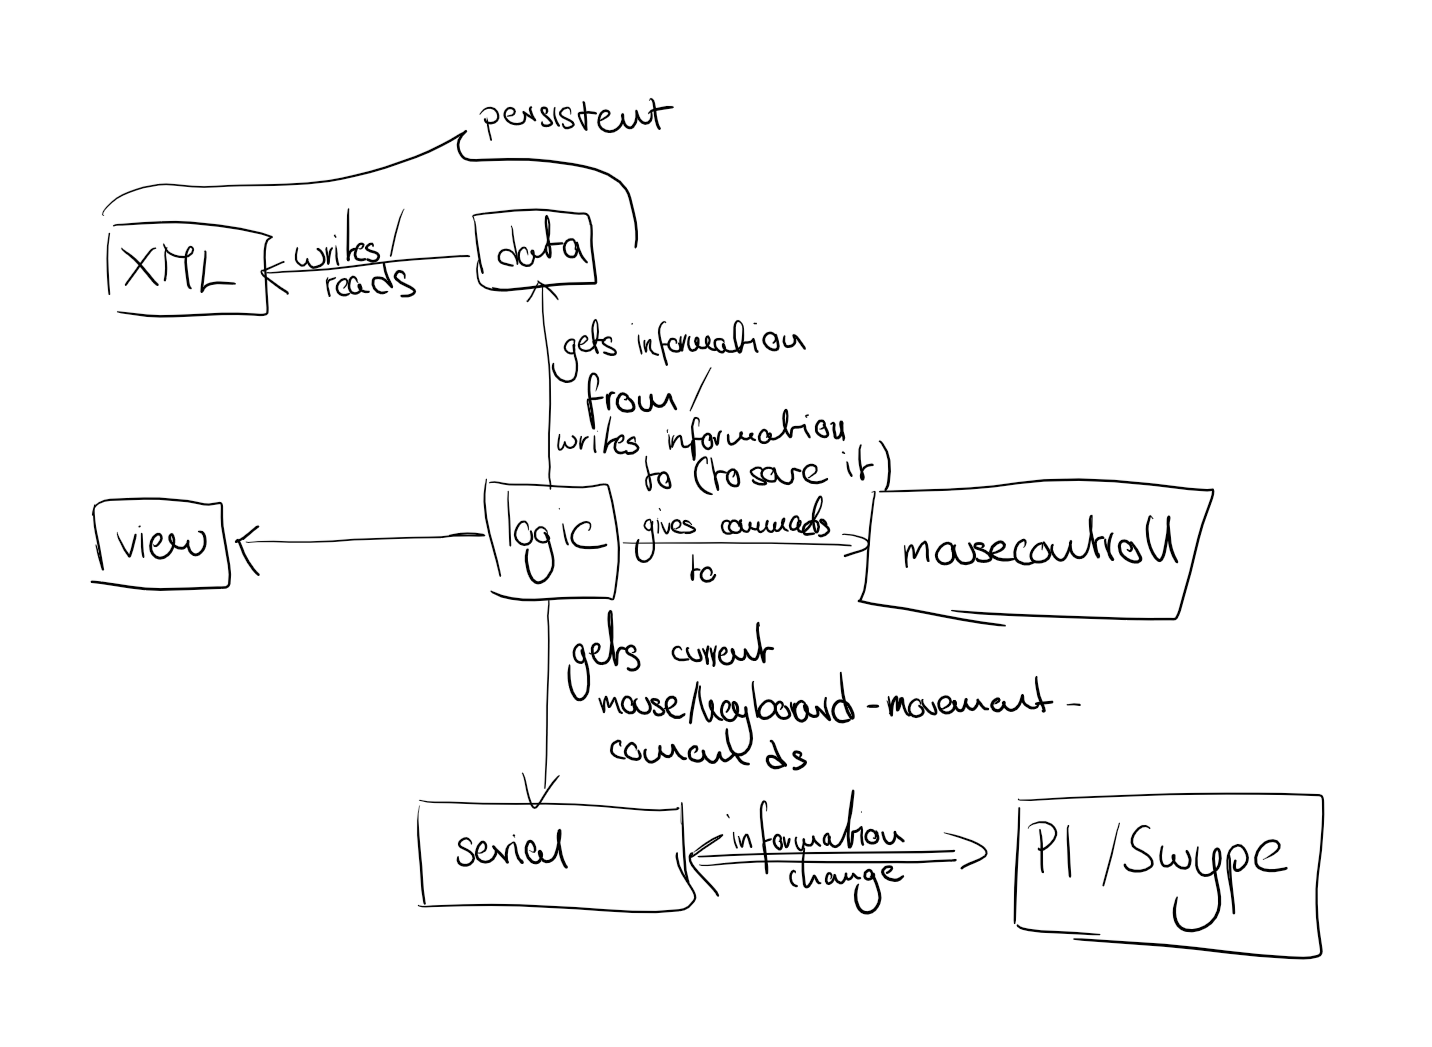 persistent
XML
writes/
reads
data
gets information
from/
writes information
to (to save it)
view
logic
gives commads
to
mousecontroll
gets current
mouse/keyboard-movement-
commands
serial
information
change
PI/Swype